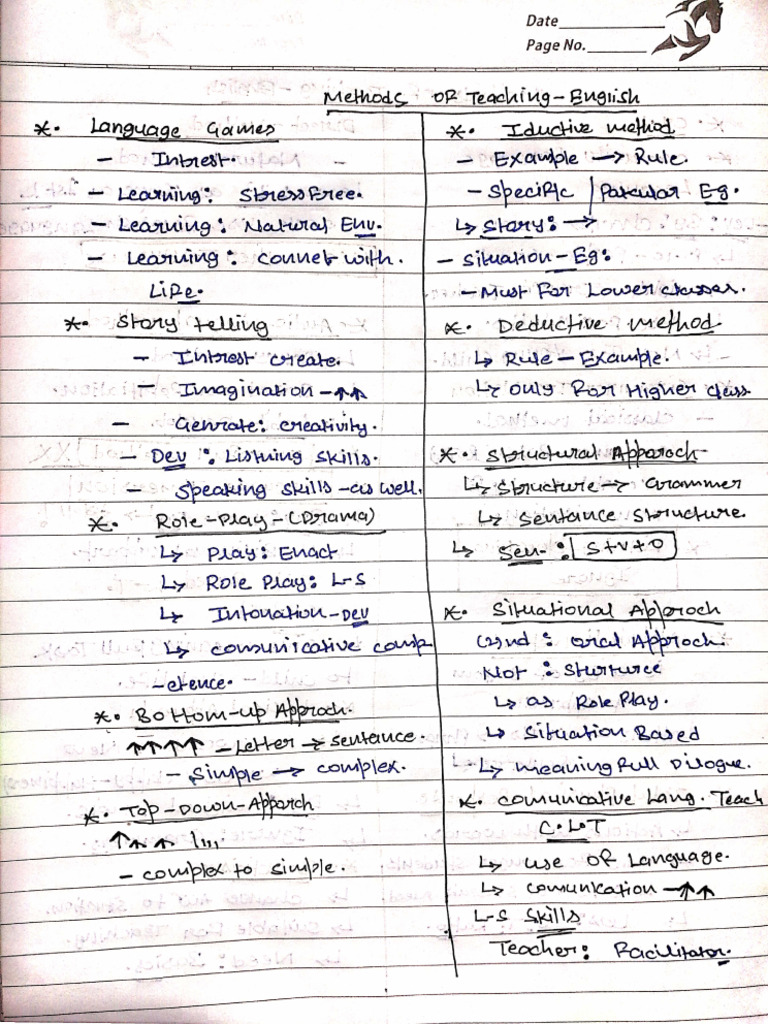 Date
Page No.
Methods OF Teaching - English
*. Language Games
- Intrest.
- Learning: StressFree.
- Learning: Natural Env.
- Learning: connet with.
Life.
*. Story telling
- Intrest create.
- Imagination - ↑↑
- Genrate: creativity.
- Dev : Listning skills.
- Speaking skills - as well.
*. Role-Play-(Drama)
↳ Play: Enact
↳ Role Play: L-S
↳ Intonation - Dev
↳ comunicative comp
-etence.
*. Bottom-up Approch.
↑↑↑↑ - Letter → sentence.
- Simple → complex.
*. Top-Down-Apparch
↑↑↑
- complex to simple.
*. Iductive method
- Example → Rule.
- Specific / Paticular Eg.
↳ Story: →
- Situation - Eg:
- Must For Lower classes.
*. Deductive method
↳ Rule - Example.
↳ only For Higher class.
*. Structural Apparoch
↳ Structure → Grammer
↳ Sentance Structure.
↳ Sen- : S+V+O
*. Situational Approch
(2)nd : oral Approch.
Not : Sturturce
↳ as Role Play.
↳ Situation Based
↳ meaning Full Dilogue.
*. Comunicative Lang. Teach
C.L.T
↳ use of Language.
↳ comunication → ↑↑
L-S Skills
Teacher: Facilitator.